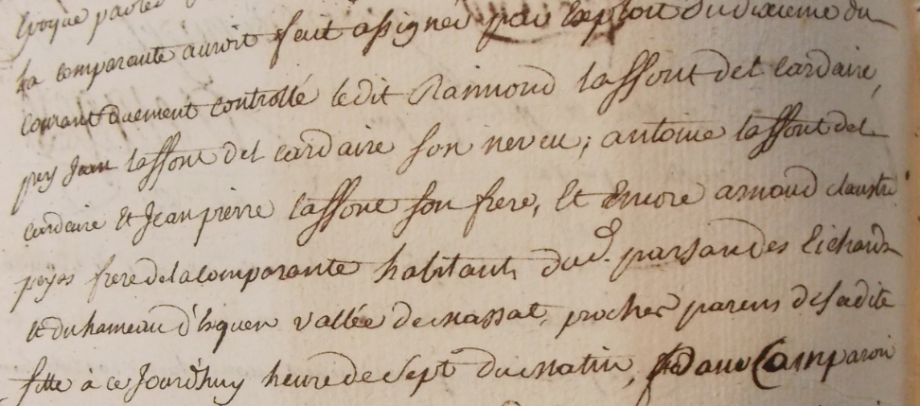 la comparante auroit fait assigner par exploit du dixieme du
courant duement controllé ledit Raimond laffont del cardaire,
pey Jean laffont del cardaire son neveu; antoine laffont del
cardaire et Jean pierre laffont son frere, et Encore arnaud claustre
peyos frere de la comparante habitants dud. parsan des Eichards
et du hameau d'Esquen vallée de massat, proches parens de sadite
fille à ce Jourdhuy heure de Sept du matin, Comparoir